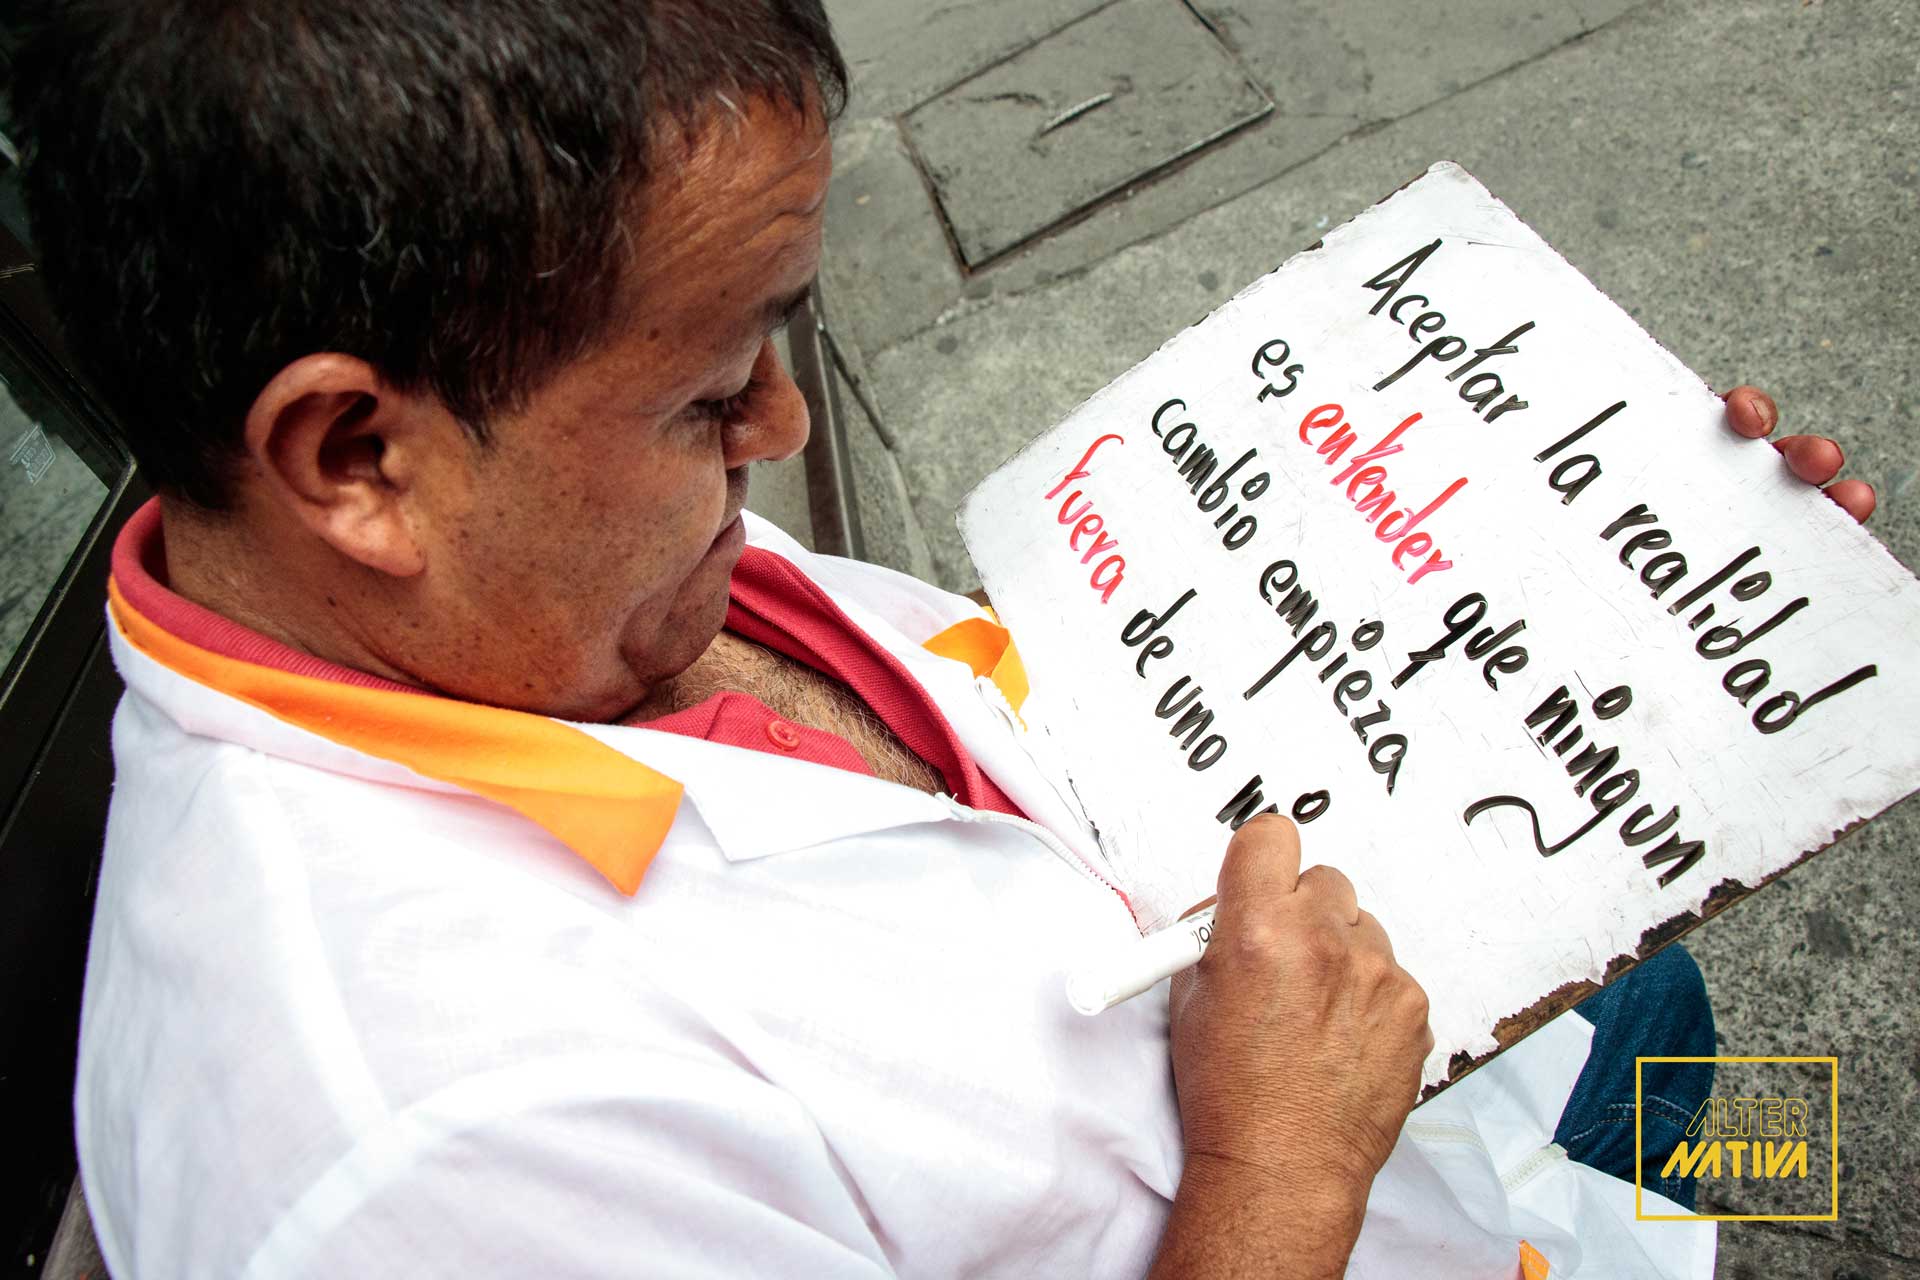 Aceptar la realidad
es entender que ningun
cambio empieza
fuera de uno mi
ALTER
NATIVA